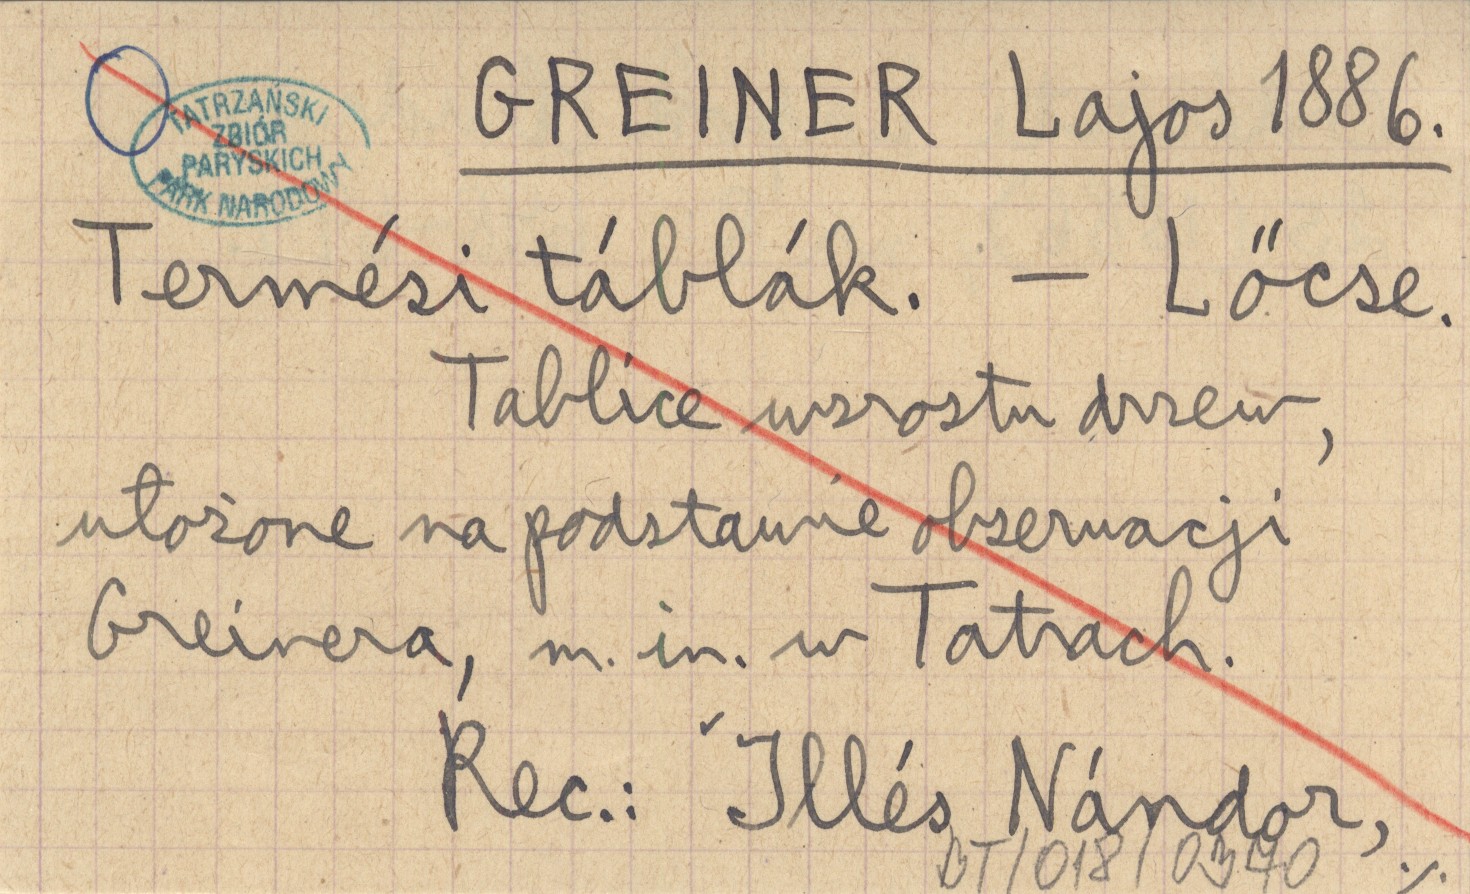 GREINER Lajos 1886.
TATRZAŃSKI
ZBIÓR
PARYSKICH
PARK NARODOWY
Termési táblák. — Lőcse.
Tablice wzrostu drzew,
ułożone na podstawie obserwacji
Greinera, m. in. w Tatrach.
Rec.: Illés Nándor,
DT/018/0340 ./.